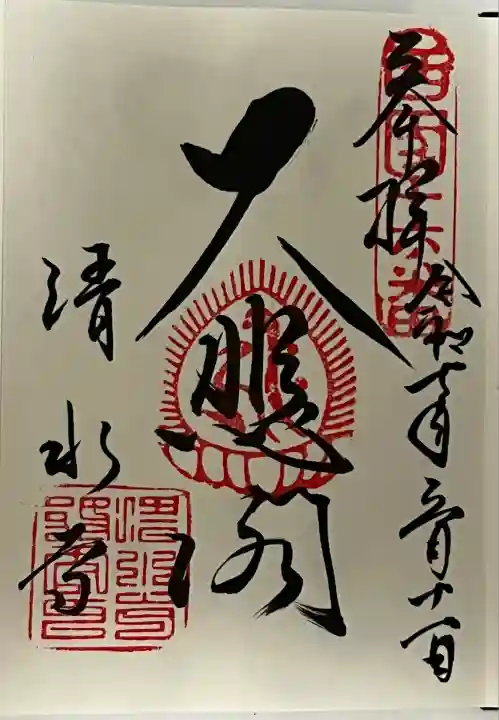 奉拝 令和七年三月十一日
大悲閣
清水寺